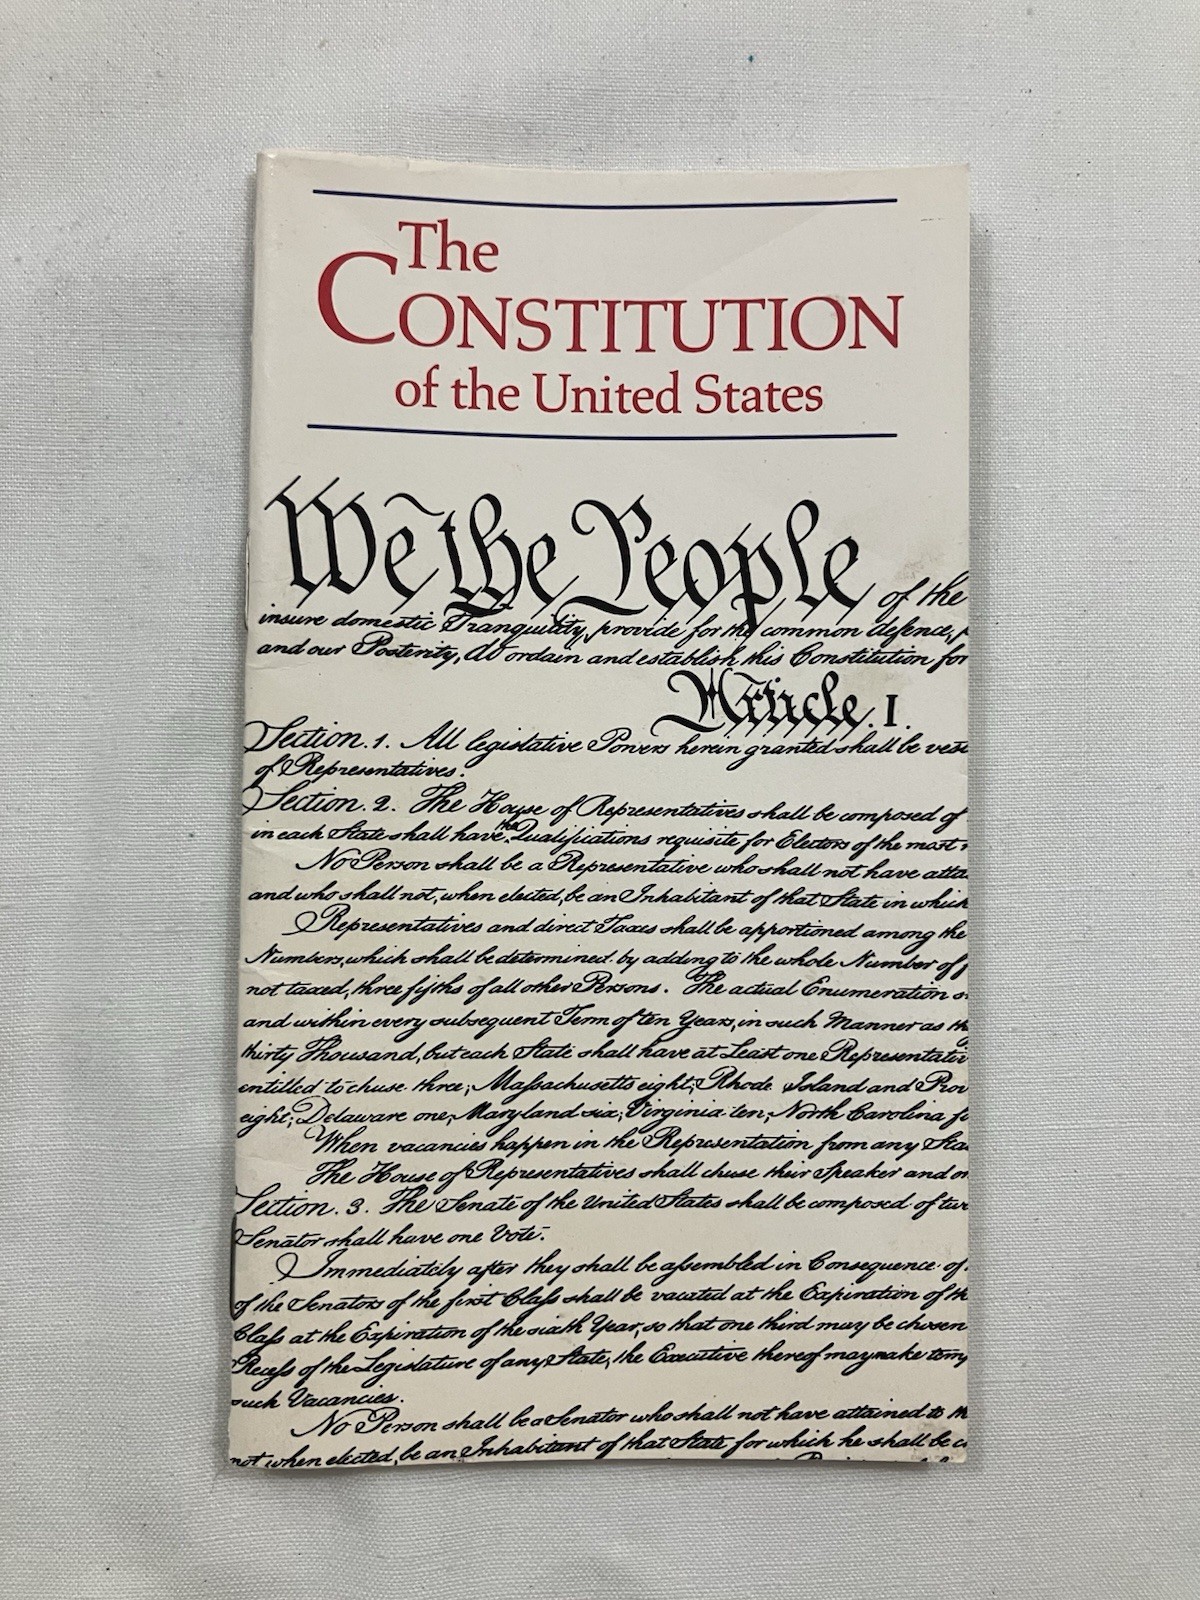 The
CONSTITUTION
of the United States
We the People of the
insure domestic Tranquility, provide for the common defence,
and our Posterity, do ordain and establish this Constitution for
Article. I.
Section. 1. All legislative Powers herein granted shall be vest
of Representatives.
Section. 2. The House of Representatives shall be composed of
in each State shall have the Qualifications requisite for Electors of the most
No Person shall be a Representative who shall not have atta
and who shall not, when elected, be an Inhabitant of that State in which
Representatives and direct Taxes shall be apportioned among the
Numbers, which shall be determined by adding to the whole Number of
not taxed, three fifths of all other Persons. The actual Enumeration
and within every subsequent Term of ten Years, in such Manner as th
thirty Thousand, but each State shall have at Least one Representativ
entitled to chuse three, Massachusetts eight, Rhode Island and Prov
eight, Delaware one, Maryland six, Virginia ten, North Carolina fi
When vacancies happen in the Representation from any Sta
The House of Representatives shall chuse their Speaker and o
Section. 3. The Senate of the United States shall be composed of two
Senator shall have one Vote.
Immediately after they shall be assembled in Consequence of
of the Senators of the first Class shall be vacated at the Expiration of th
Class at the Expiration of the sixth Year, so that one third may be chosen
Recess of the Legislature of any State, the Executive thereof may make temp
such Vacancies.
No Person shall be a Senator who shall not have attained to th
not when elected, be an Inhabitant of that State for which he shall be c